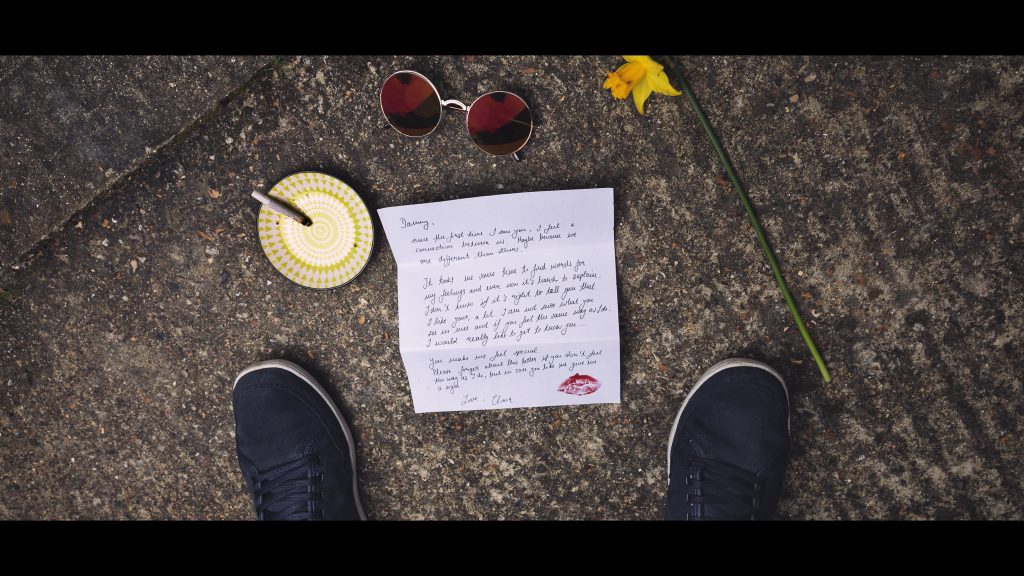 Darling,
since the first time I saw you, I feel a
connection between us. Maybe because we
are different than others.
It took me some time to find words for
my feelings and even now it's hard to explain.
I don't know if it's right to tell you that
I like you, a lot. I am not sure what you
see in me and if you feel the same way as I do.
I would really like to get to know you...
You make me feel special.
Please forget about this letter if you don't feel
the way as I do, but in case you like me give me
a sign.
Love,